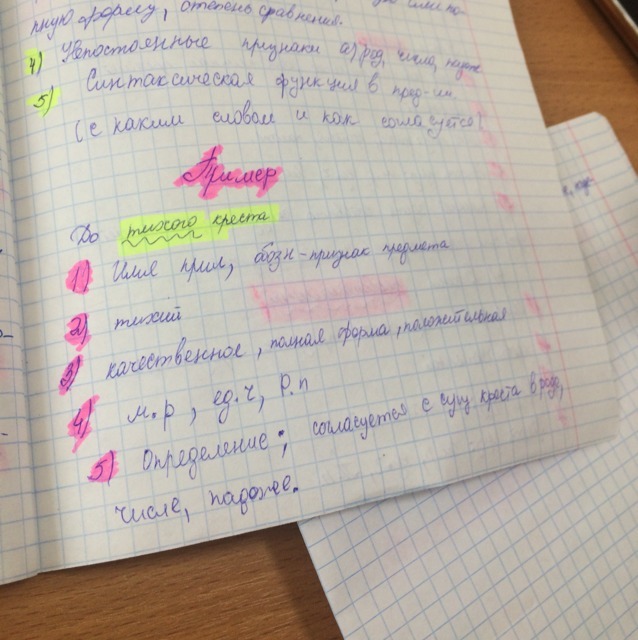 ную форму, степень сравнения.
4) Непостоянные признаки а) род, число, падеж
5) Синтаксическая функция в пред-ии
(с каким словом и как согласуется)
Пример
До тихого креста
1) Имя прил, обозн-признак предмета
2) тихий
3) качественное, полная форма, положительная
4) м.р, ед.ч, Р.п
5) Определение; согласуется с сущ креста в роде,
числе, падеже.